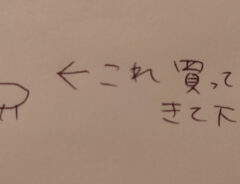 ←これ買って
きて下